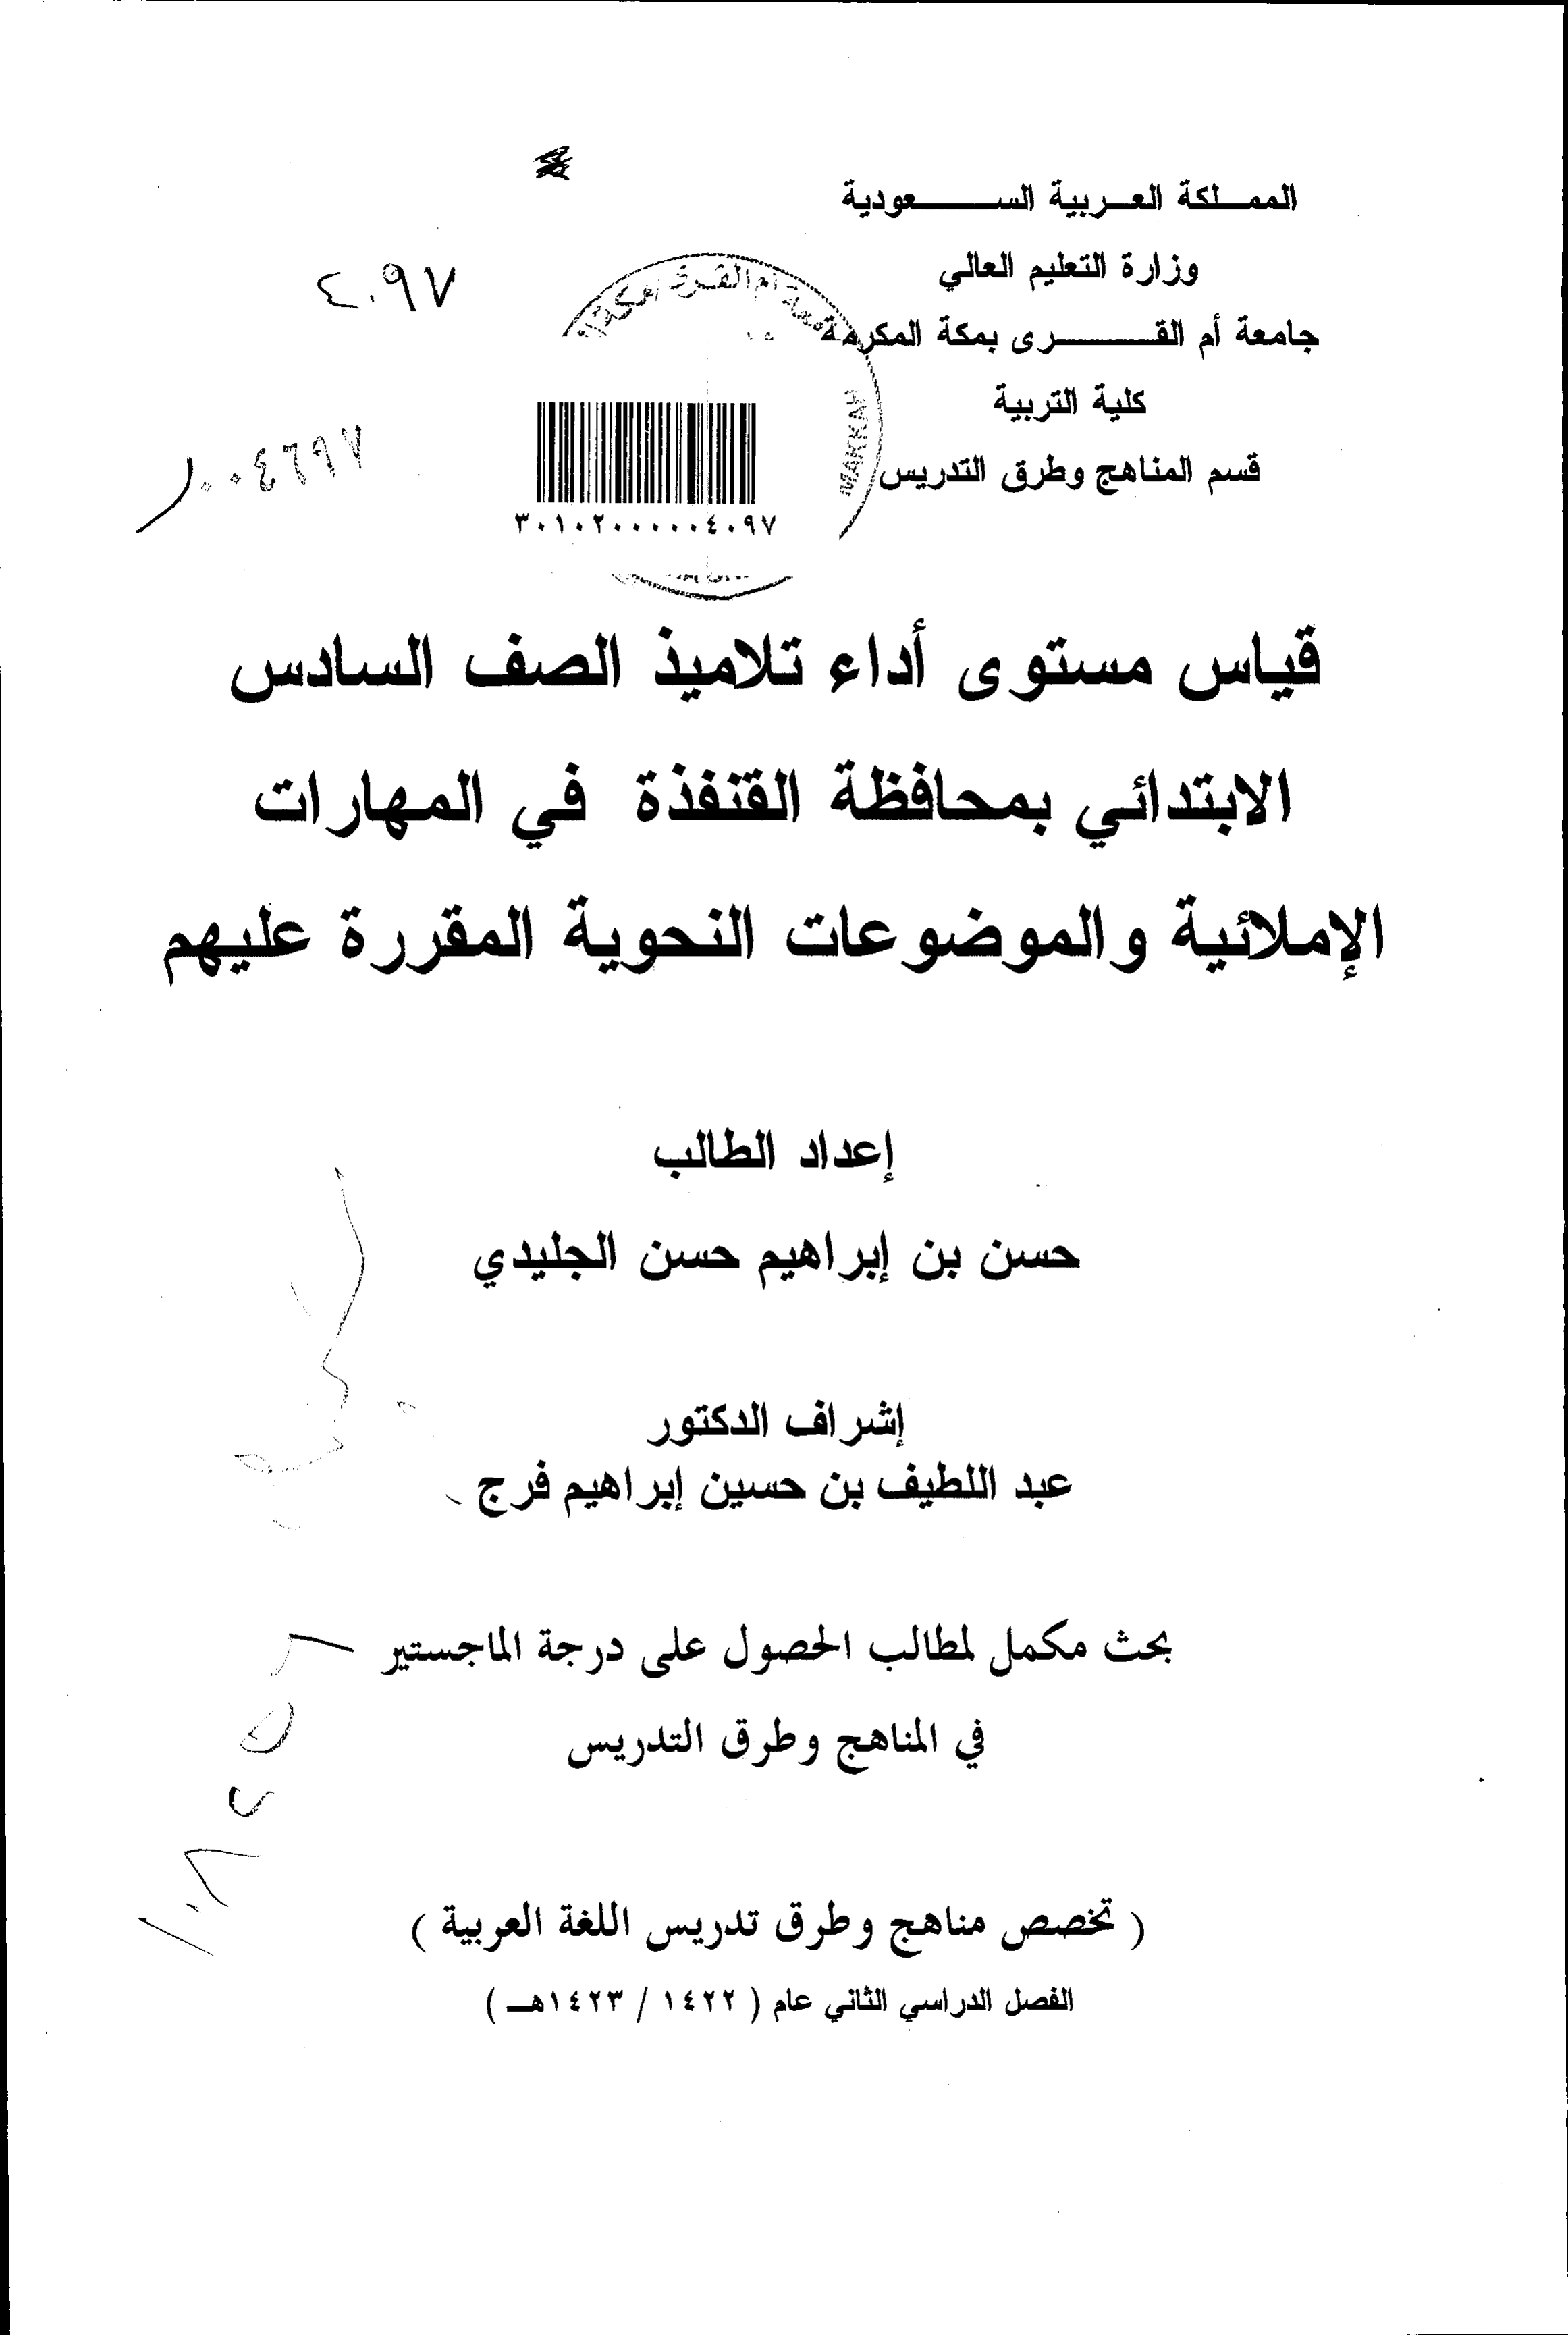 المملكة العربية السعودية
وزارة التعليم العالي
جامعة أم القرى بمكة المكرمة
كلية التربية
قسم المناهج وطرق التدريس
٤٠٩٧
MAKKAH
٠٠٤٦٩٧
٣٠١٠٢٠٠٠٠٠٤٠٩٧
قياس مستوى أداء تلاميذ الصف السادس
الابتدائي بمحافظة القنفذة في المهارات
الإملائية والموضوعات النحوية المقررة عليهم
إعداد الطالب
حسن بن إبراهيم حسن الجليدي
إشراف الدكتور
عبد اللطيف بن حسين إبراهيم فرج
بحث مكمل لمطالب الحصول على درجة الماجستير
في المناهج وطرق التدريس
( تخصص مناهج وطرق تدريس اللغة العربية )
الفصل الدراسي الثاني عام ( ١٤٢٢ / ١٤٢٣هـ )